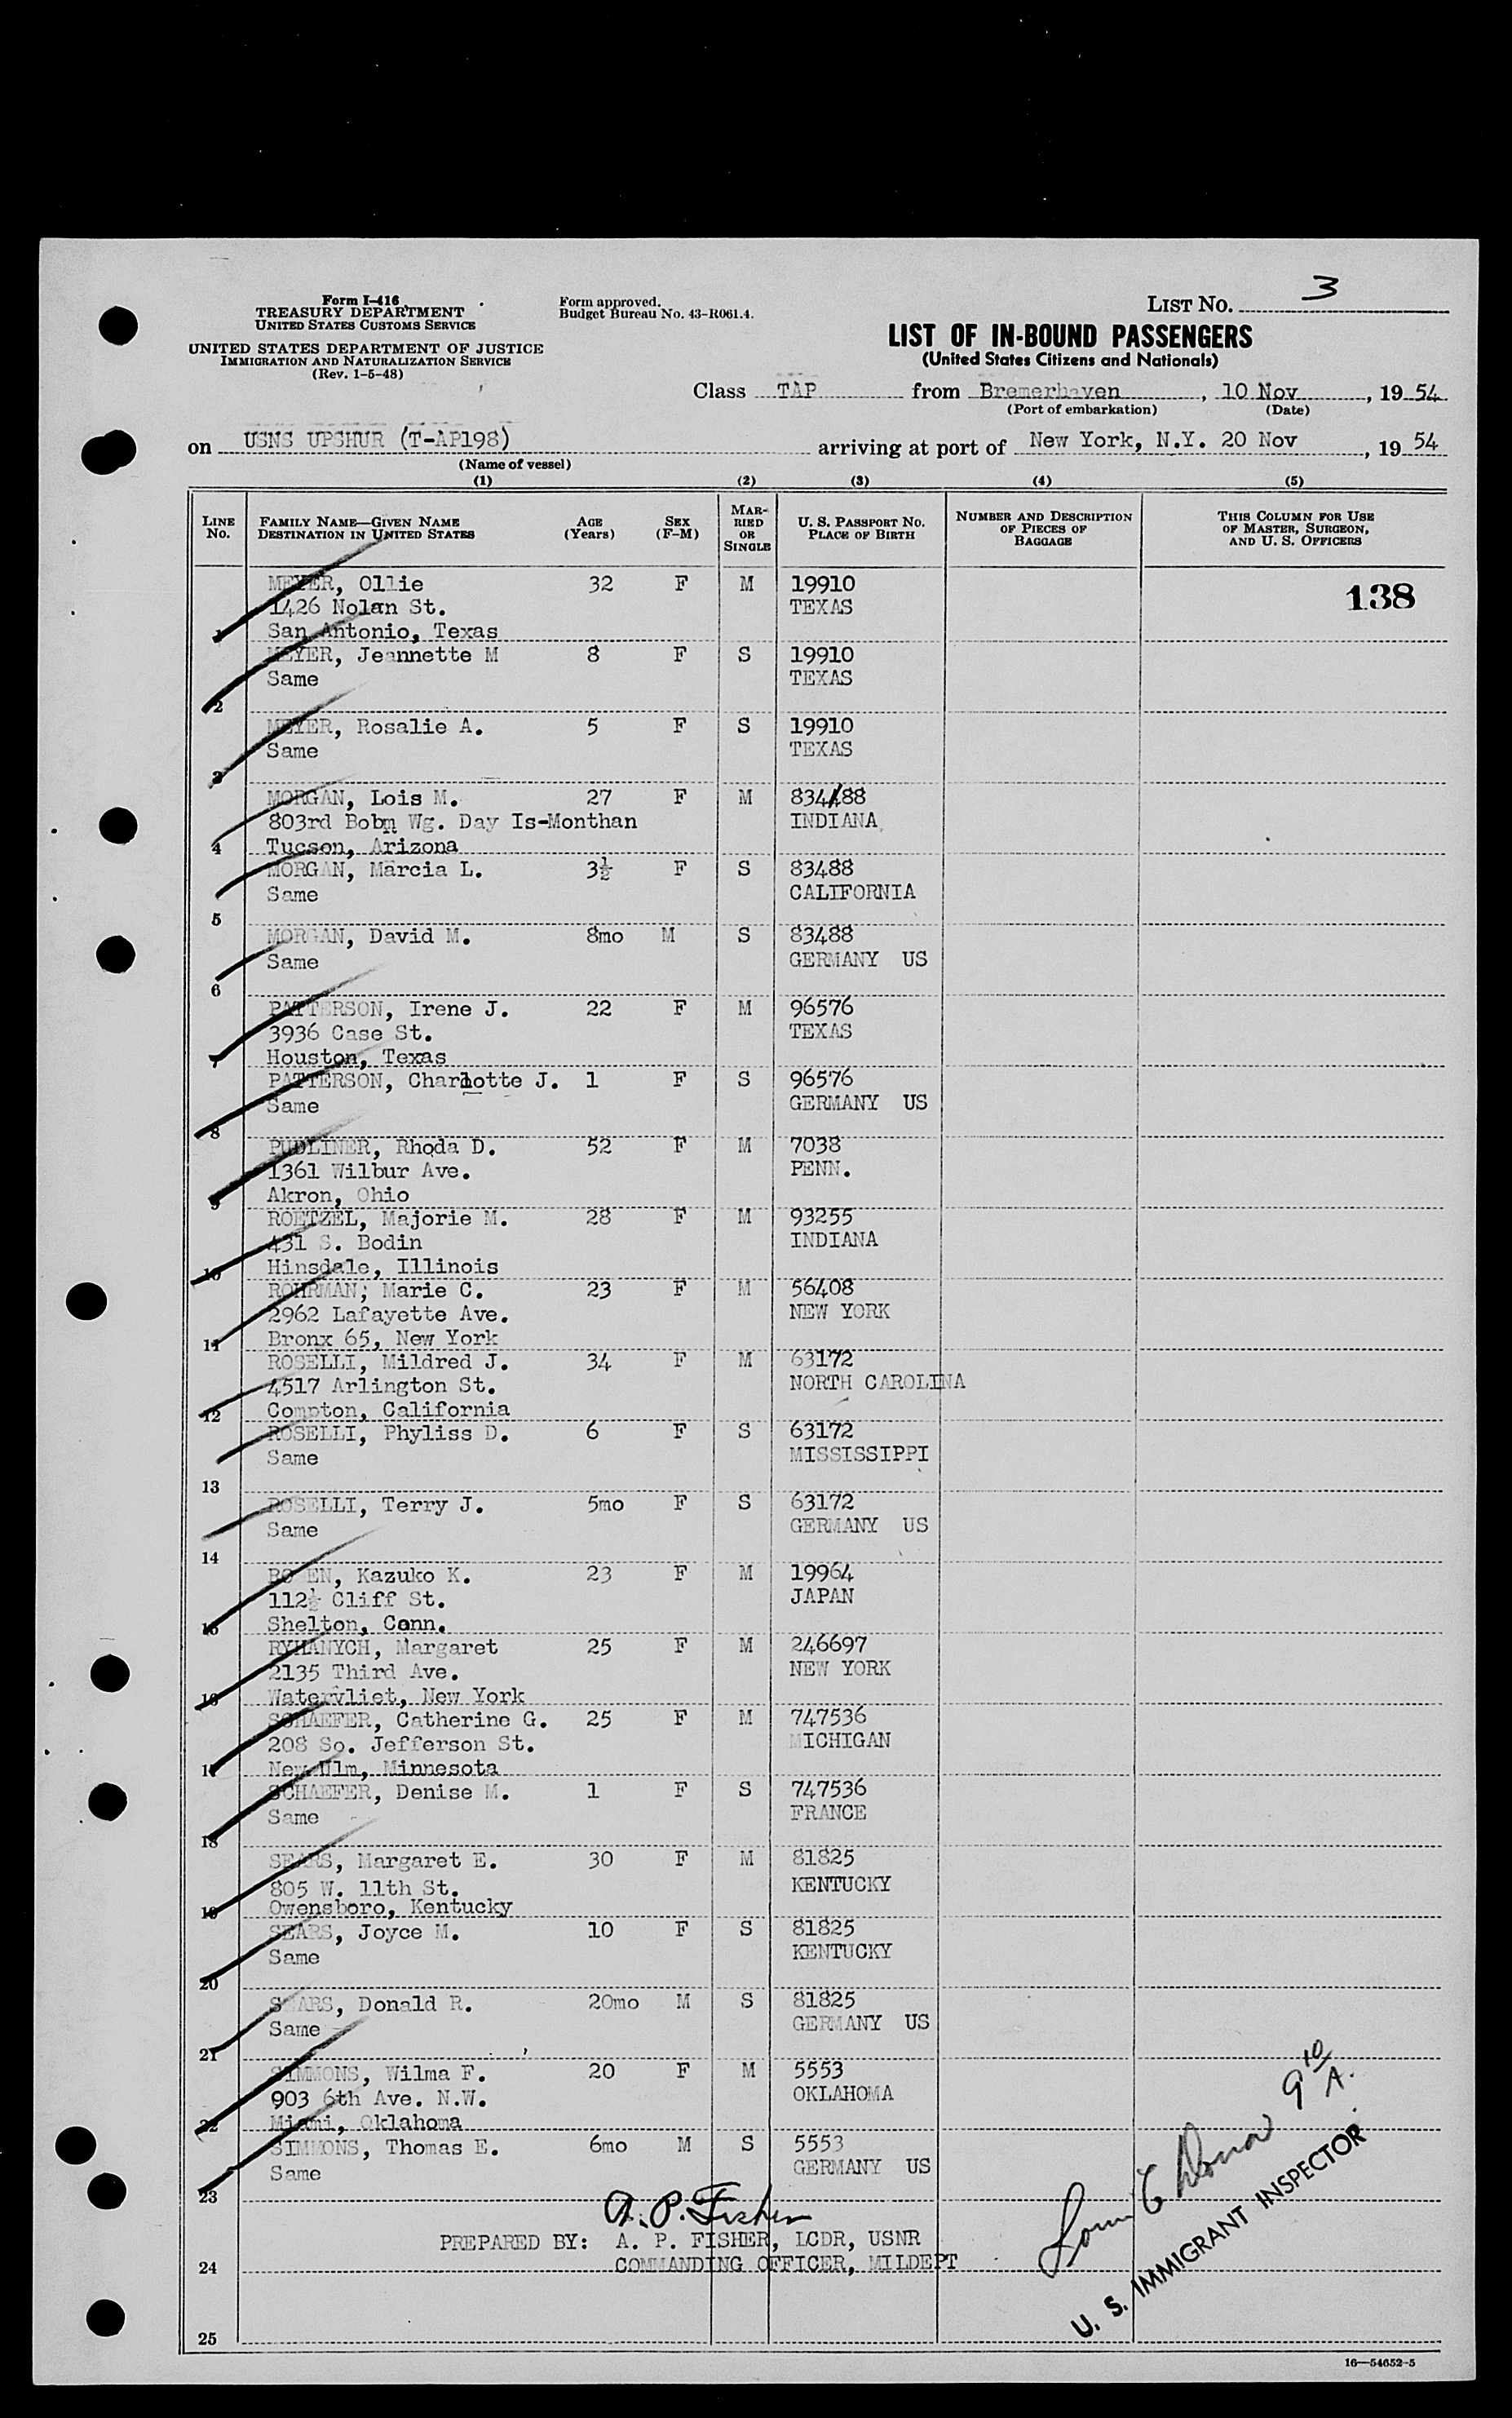 Form I-416
TREASURY DEPARTMENT
UNITED STATES CUSTOMS SERVICE
UNITED STATES DEPARTMENT OF JUSTICE
IMMIGRATION AND NATURALIZATION SERVICE
(Rev. 1-5-48)
Form approved.
Budget Bureau No. 43-R061.4.
LIST No. 3
LIST OF IN-BOUND PASSENGERS
(United States Citizens and Nationals)
Class TAP from Bremerhaven, 10 Nov, 19 54
(Port of embarkation) (Date)
on USNS UPSHUR (T-AP198) arriving at port of New York, N.Y. 20 Nov, 19 54
(Name of vessel)
(1) (2) (3) (4) (5)
LINE No. FAMILY NAME—GIVEN NAME DESTINATION IN UNITED STATES AGE (Years) SEX (F-M) MARRIED OR SINGLE U. S. PASSPORT No. PLACE OF BIRTH NUMBER AND DESCRIPTION OF PIECES OF BAGGAGE THIS COLUMN FOR USE OF MASTER, SURGEON, AND U. S. OFFICERS
MEYER, Ollie 32 F M 19910 138
1426 Nolan St. TEXAS
1 San Antonio, Texas
MEYER, Jeannette M 8 F S 19910
Same TEXAS
2
MEYER, Rosalie A. 5 F S 19910
Same TEXAS
3
MORGAN, Lois M. 27 F M 834/88
803rd Bobm Wg. Day Is-Monthan INDIANA
4 Tucson, Arizona
MORGAN, Marcia L. 3½ F S 83488
Same CALIFORNIA
5
MORGAN, David M. 8mo M S 83488
Same GERMANY US
6
PATTERSON, Irene J. 22 F M 96576
3936 Case St. TEXAS
7 Houston, Texas
PATTERSON, Charlotte J. 1 F S 96576
Same GERMANY US
8
PUDLINER, Rhoda D. 52 F M 7038
1361 Wilbur Ave. PENN.
9 Akron, Ohio
ROETZEL, Majorie M. 28 F M 93255
431 S. Bodin INDIANA
10 Hinsdale, Illinois
ROHRMAN; Marie C. 23 F M 56408
2962 Lafayette Ave. NEW YORK
11 Bronx 65, New York
ROSELLI, Mildred J. 34 F M 63172
4517 Arlington St. NORTH CAROLINA
12 Compton, California
ROSELLI, Phyliss D. 6 F S 63172
Same MISSISSIPPI
13
ROSELLI, Terry J. 5mo F S 63172
Same GERMANY US
14
Kazuko K. 23 F M 19964
112½ Cliff St. JAPAN
15 Shelton, Conn.
RYHANYCH, Margaret 25 F M 246697
2135 Third Ave. NEW YORK
16 Watervliet, New York
SCHAEFER, Catherine G. 25 F M 747536
208 So. Jefferson St. MICHIGAN
17 New Ulm, Minnesota
SCHAEFER, Denise M. 1 F S 747536
Same FRANCE
18
SEARS, Margaret E. 30 F M 81825
805 W. 11th St. KENTUCKY
19 Owensboro, Kentucky
SEARS, Joyce M. 10 F S 81825
Same KENTUCKY
20
SEARS, Donald R. 20mo M S 81825
Same GERMANY US
21
SIMMONS, Wilma F. 20 F M 5553
903 6th Ave. N.W. OKLAHOMA
22 Miami, Oklahoma
SIMMONS, Thomas E. 6mo M S 5553
Same GERMANY US
23
A. P. Fisher
PREPARED BY: A. P. FISHER, LCDR, USNR
24 COMMANDING OFFICER, MILDEPT
9 10/A.
U. S. IMMIGRANT INSPECTOR
25
16—54652-5